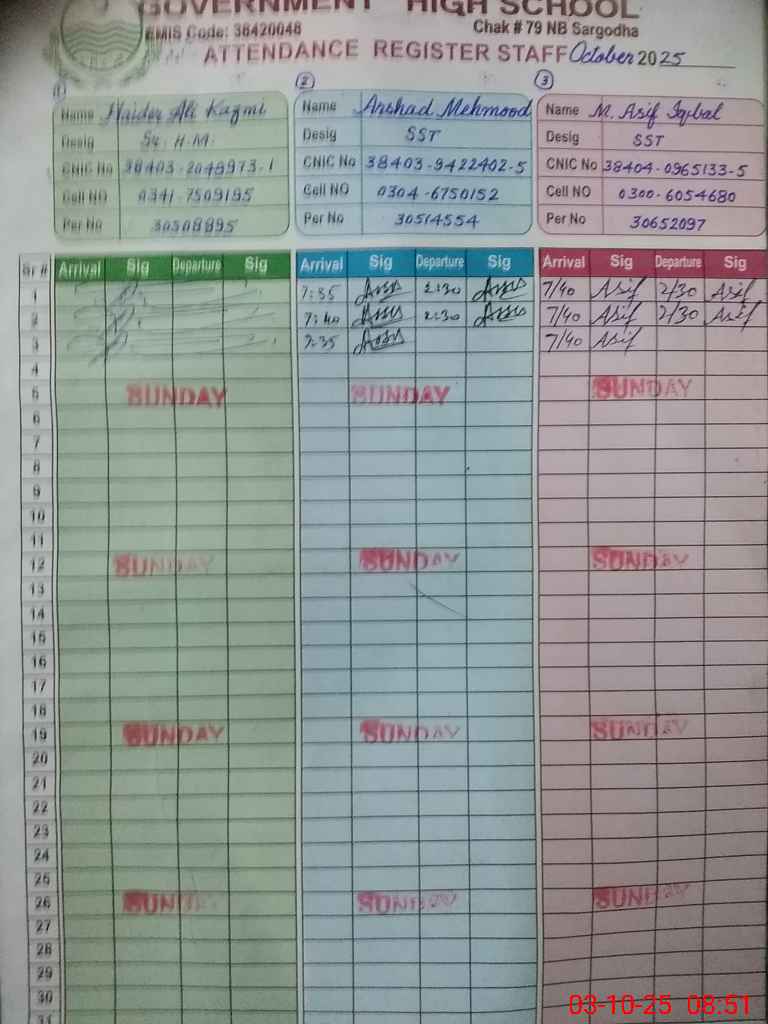 GOVERNMENT HIGH SCHOOL
EMIS Code: 38420048 Chak # 79 NB Sargodha
ATTENDANCE REGISTER STAFF October 2025
1 2 3
Name Haider Ali Kazmi Name Arshad Mehmood Name M. Asif Iqbal
Desig Sr. H.M. Desig SST Desig SST
CNIC No 38403-2049973-1 CNIC No 38403-9422402-5 CNIC No 38404-0965133-5
Cell NO 0341-7509195 Cell NO 0304-6750152 Cell NO 0300-6054680
Per No 30308895 Per No 30514554 Per No 30652097
Sr # Arrival Sig Departure Sig Arrival Sig Departure Sig Arrival Sig Departure Sig
1 7:35 2:30 7/40 Asif 2/30 Asif
2 7:40 2:30 7/40 Asif 2/30 Asif
3 7:35 7/40 Asif
4
5 SUNDAY SUNDAY SUNDAY
6
7
8
9
10
11
12 SUNDAY SUNDAY SUNDAY
13
14
15
16
17
18
19 SUNDAY SUNDAY SUNDAY
20
21
22
23
24
25
26 SUNDAY SUNDAY SUNDAY
27
28
29
30
31
03-10-25 08:51